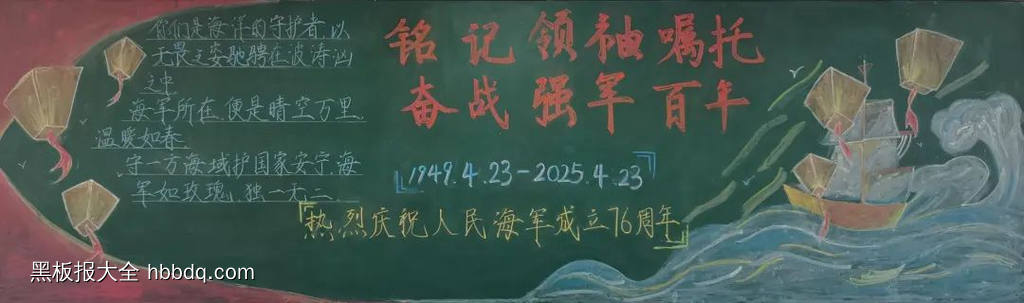 你们是海洋的守护者,以
无畏之姿驰骋在波涛汹
之中
海军所在,便是晴空万里,
温暖如春
守一方海域护国家安宁,海
军如玫瑰,独一无二
铭记领袖嘱托
奋战强军百年
1949.4.23-2025.4.23
热烈庆祝人民海军成立76周年
黑板报大全 hbbdq.com